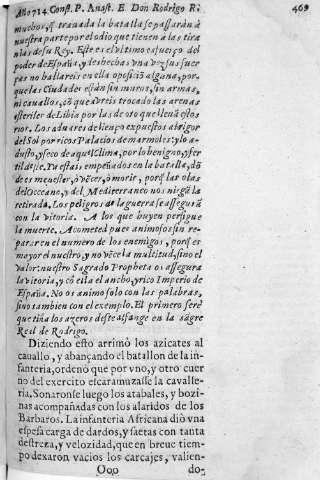 Año 714. Const. P. Anast. E. Don Rodrigo R. 469
muchos, q̃ trauada la batalla se passarán à
nuestra parte por el odio que tienen a las tira
nias de su Rey. Este es el vltimo esfuerço del
poder de España, y deshechas vna vez sus fuer
ças no hallareis en ella oposiciõ alguna, por-
que las Ciudades están sin muros, sin armas,
ni cauallos, cõ que aureis trocado las arenas
esteriles de Libia por las de oro que lleuã estos
rios. Los aduares de lienço expuestos al rigor
del Sol por ricos Palacios de marmoles: y lo a-
dusto, y seco de aquel Clima, por lo benigno, y fer
til deste. Ya estais empeñados en la batalla, dõ
de es menester, ò vẽcer, ò morir, porq̃ las olas
del Occeano, y del Mediterraneo nos niegã la
retirada. Los peligros de la guerra se assegurã
con la vitoria. A los que huyen persigue
la muerte. Acometed pues animosos sin re-
parar en el numero de los enemigos, porq̃ es
mayor el nuestro, y no vẽce la multitud, sino el
valor: nuestro Sagrado Propheta os assegura
la vitoria, y cõ ella el ancho, y rico Imperio de
España. No os animo solo con las palabras,
sino tambien con el exemplo. El primero seré
que tiña los azeros deste alfange en la sãgre
Real de Rodrigo.
Diziendo esto arrimò los azicates al
cauallo, y abançando el batallon de la in-
fanteria, ordenò que por vno, y otro cuer
no del exercito escaramuzasse la cavalle-
ria. Sonaronse luego los atabales, y bozi-
nas acompañadas con los alaridos de los
Barbaros. La infanteria Africana diò vna
espesa carga de dardos, y saetas con tanta
destreza, y velozidad, que en breue tiem-
po dexaron vacios los carcajes, valien-
Ooo do-